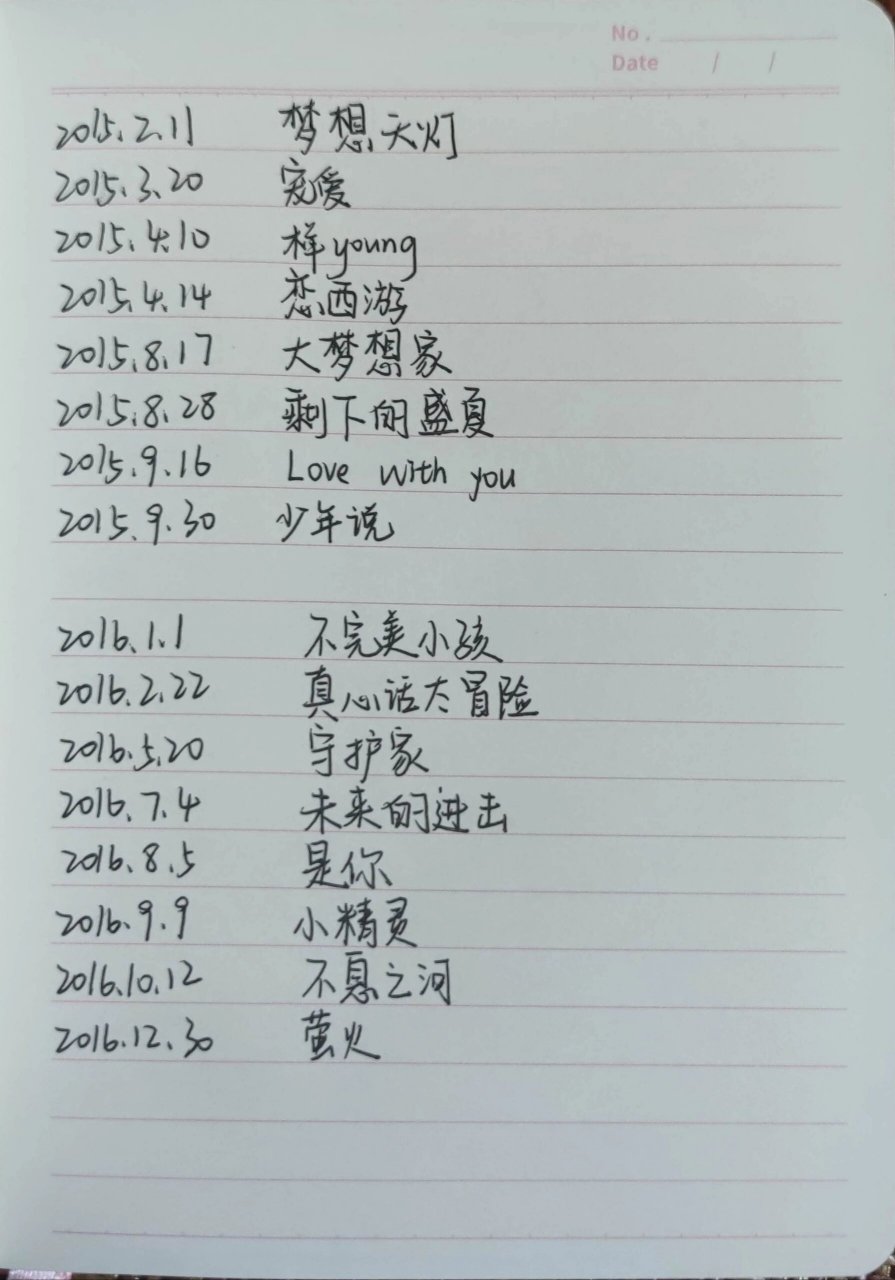 No.
Date / /
2015.2.11 梦想天灯
2015.3.20 宠爱
2015.4.10 样young
2015.4.14 恋西游
2015.8.17 大梦想家
2015.8.28 剩下的盛夏
2015.9.16 Love with you
2015.9.30 少年说
2016.1.1 不完美小孩
2016.2.22 真心话太冒险
2016.5.20 守护家
2016.7.4 未来的进击
2016.8.5 是你
2016.9.9 小精灵
2016.10.12 不息之河
2016.12.30 萤火